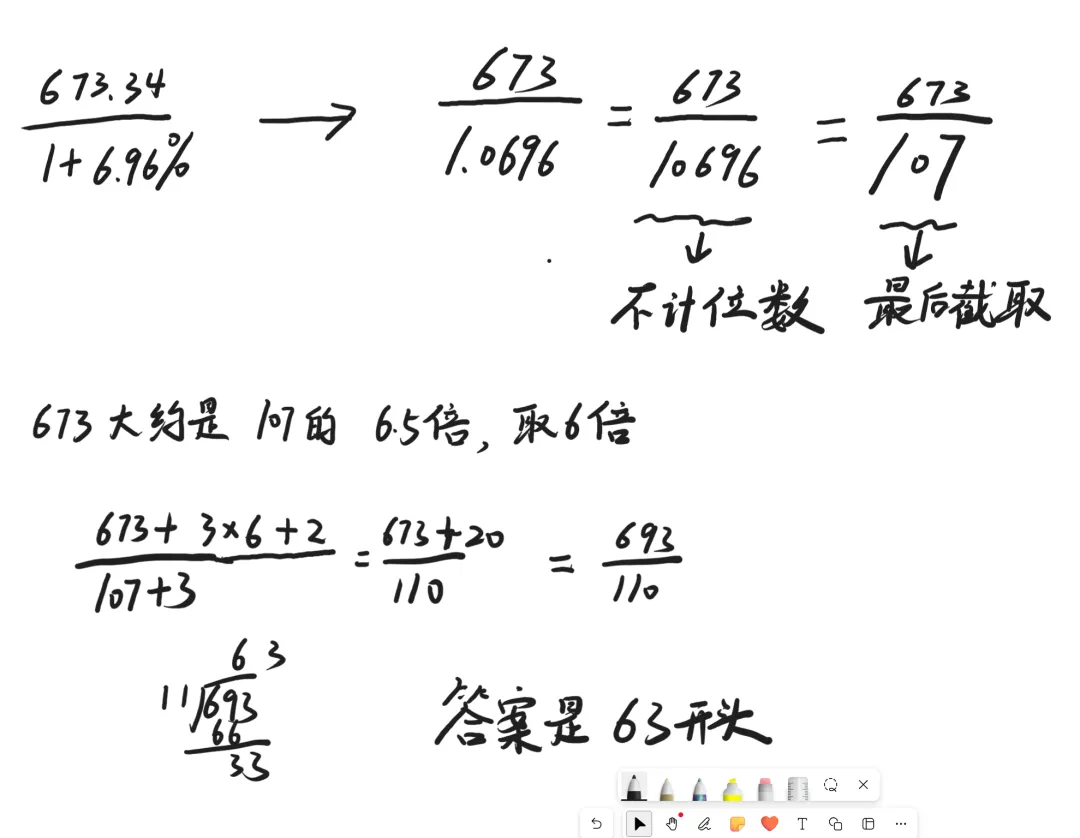 673.34 / 1+6.96% → 673 / 1.0696 = 673 / 10696 = 673 / 107
↓ ↓
不计位数 最后截取
673大约是107的6.5倍,取6倍
673+3×6+2 / 107+3 = 673+20 / 110 = 693 / 110
63
11 693
66
33
答案是63开头
T